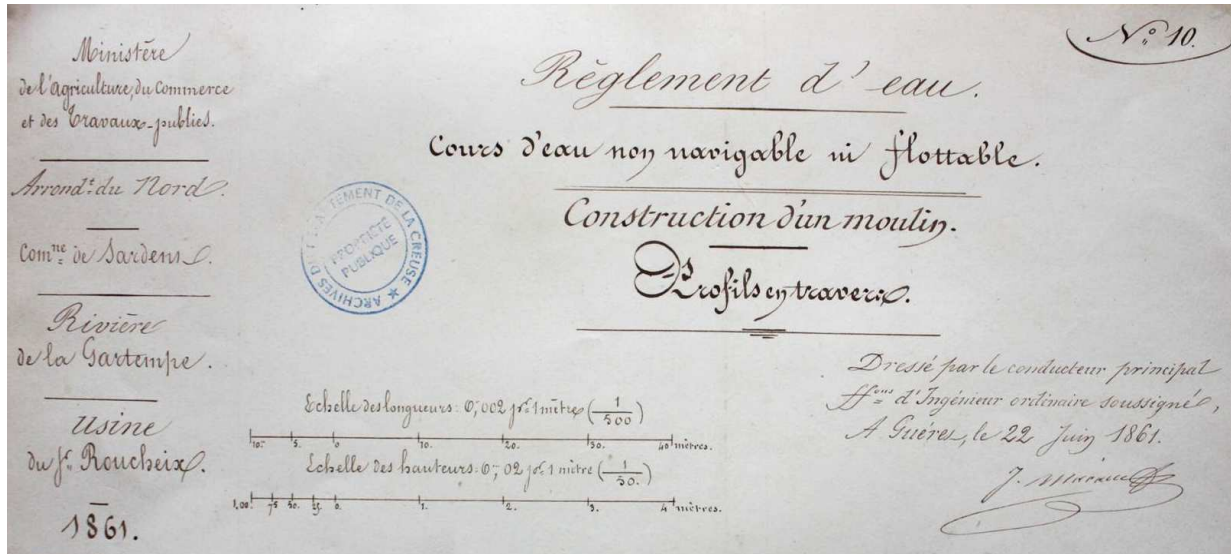 Ministère
de l'Agriculture, du Commerce
et des Travaux-publics.
Arrond.t du Nord.
Com.ne de Sardent.
Rivière
de la Gartempe.
Usine
du S.r Roucheix.
1861.
N.o 10.
Règlement d'eau.
Cours d'eau non navigable ni flottable.
Construction d'un moulin.
Profils en travers.
ARCHIVES DU DÉPARTEMENT DE LA CREUSE
PROPRIÉTÉ
PUBLIQUE
Echelle des longueurs: 0,m002 p.r 1 mètre (1/500)
10. 5. 0 10. 20. 30. 40 mètres.
Echelle des hauteurs: 0,m02 p.r 1 mètre (1/50.)
1,00. 75 50. 25. 0. 1. 2. 3. 4 mètres.
Dressé par le conducteur principal
ff.ons d'Ingénieur ordinaire soussigné,
A Guéret, le 22 Juin 1861.